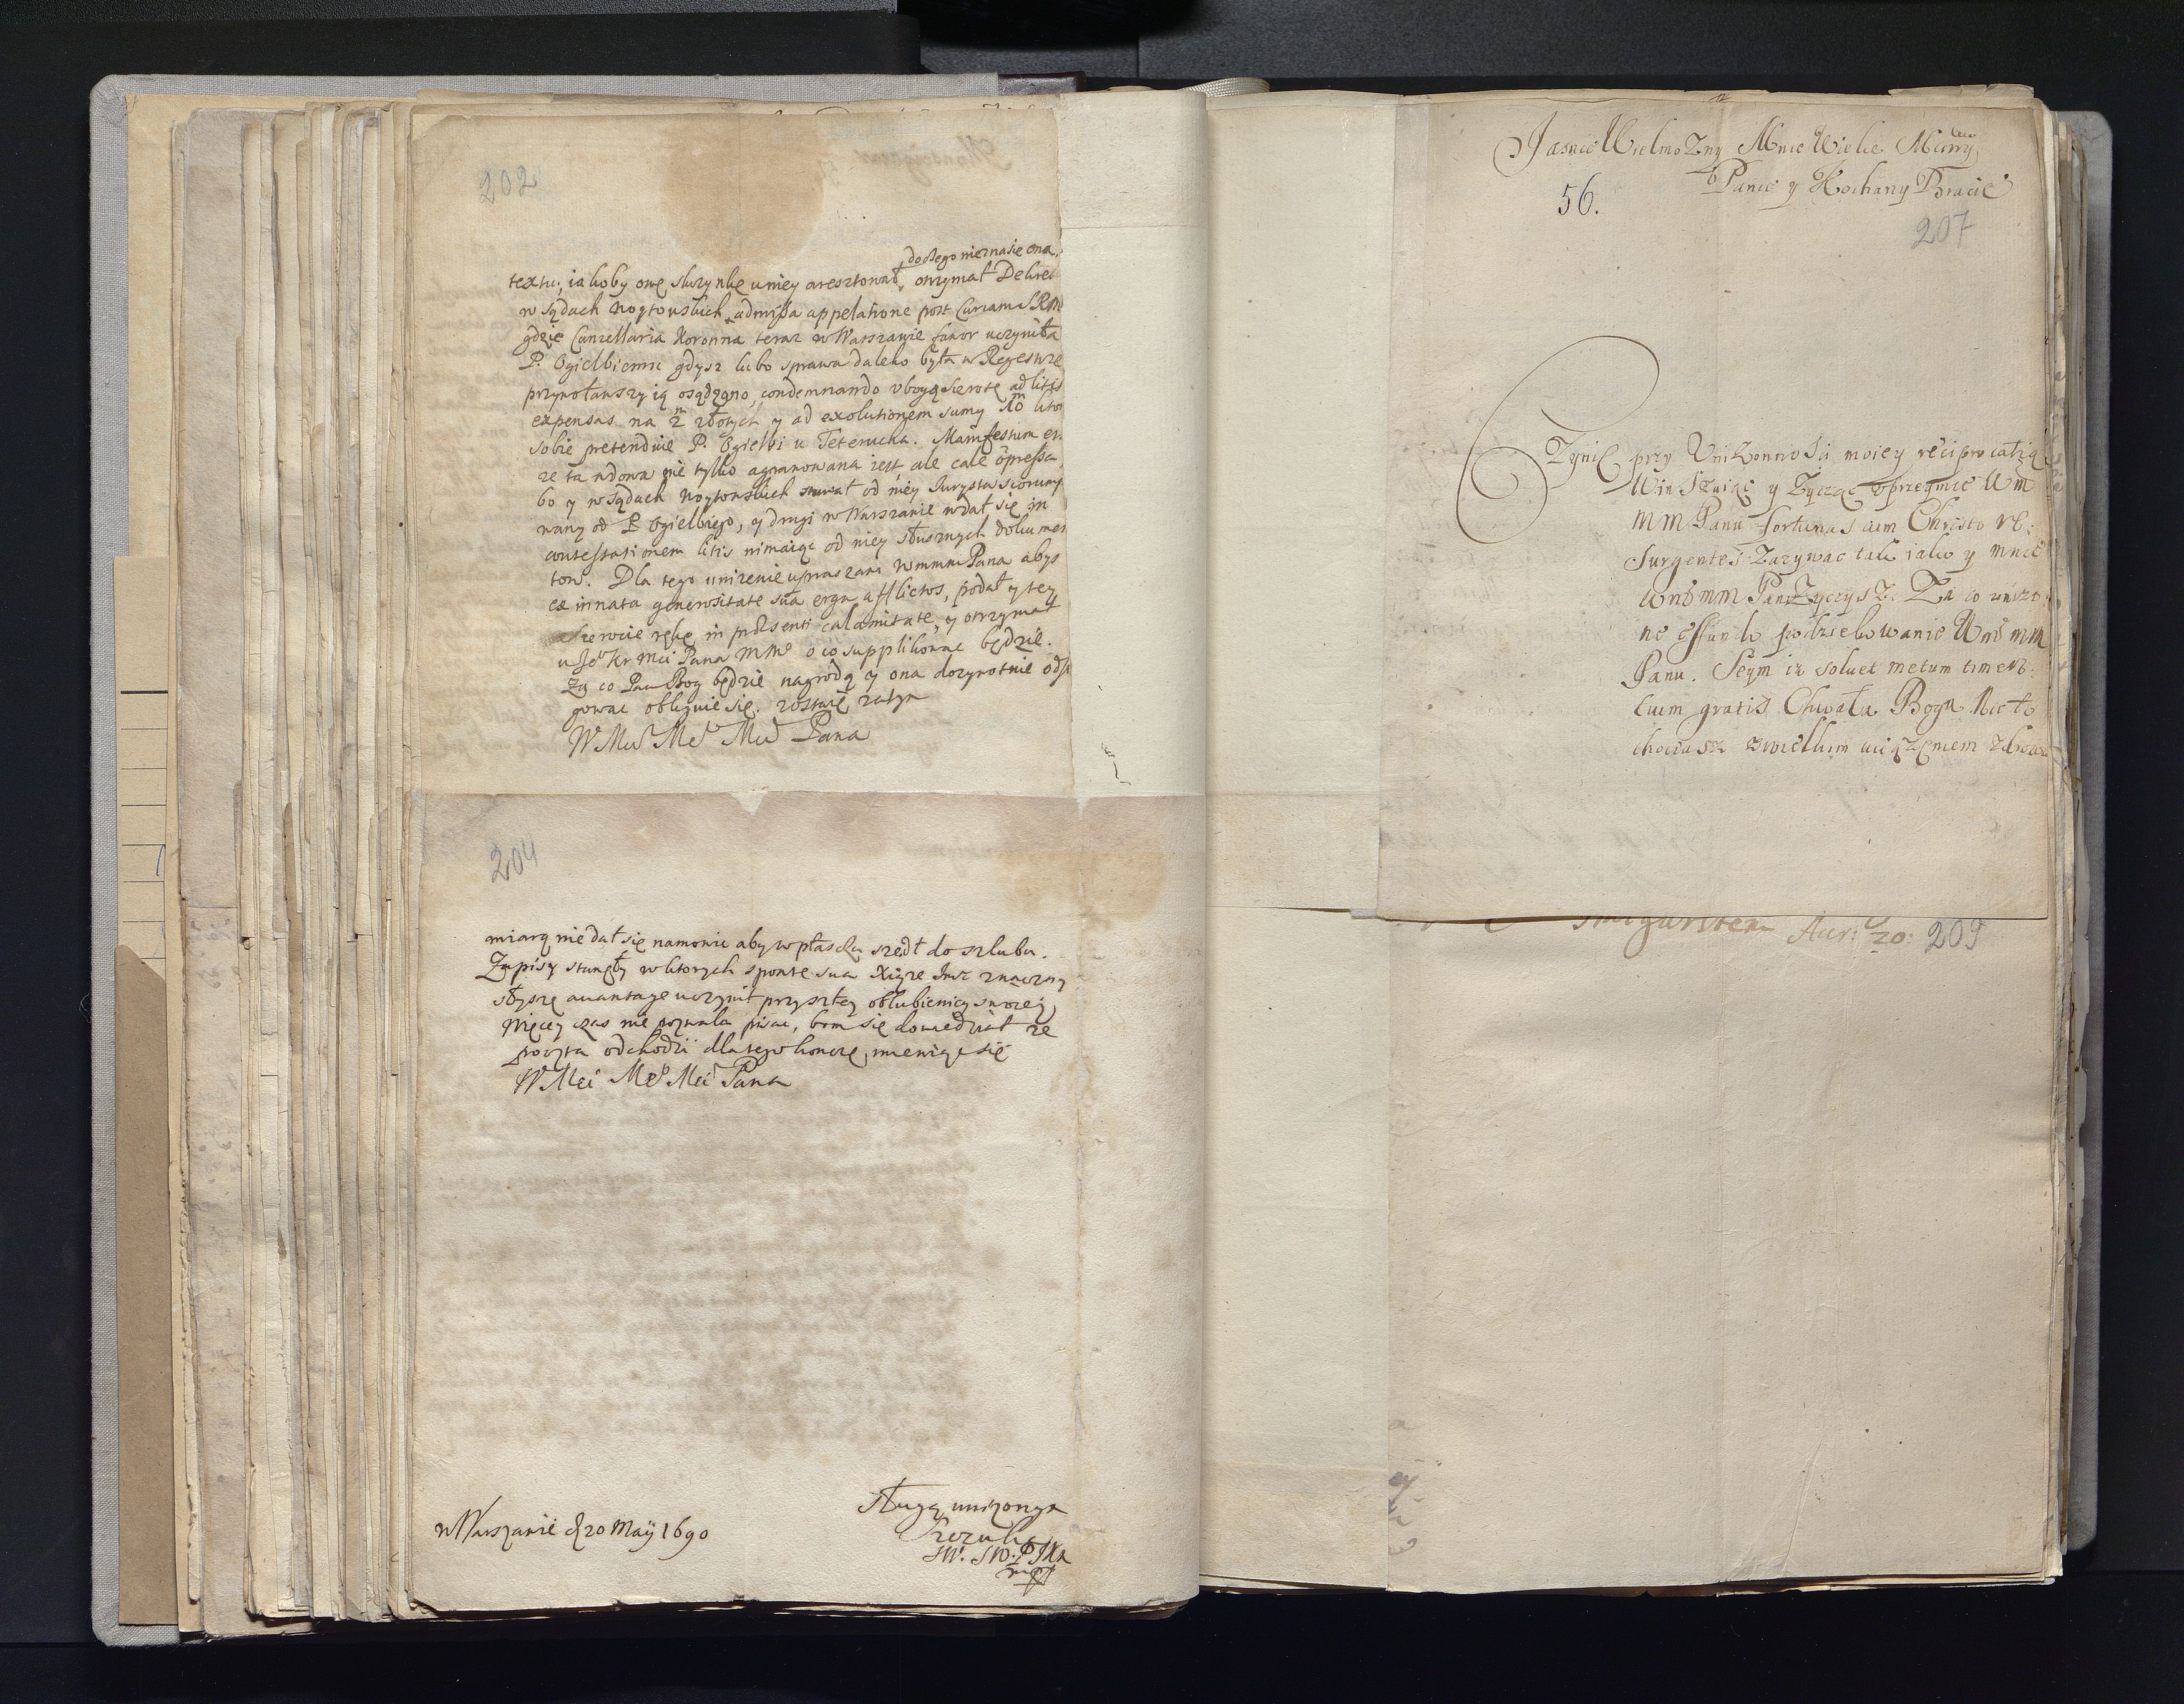 202
do czego nieznasie ona
textu, iakoby onę skrzynkę u niey aresztował, otrzymał Dekret
w sądach woytowskich, admissa appelatione post Curiam SRM
gdzie Cancellaria Koronna teraz w Warszawie fawor uczyniła
P. Ogielbiemu gdysz lubo sprawa daleko była w Regestrze
przywoławszy ią osądzono, condemnando ubogą sierotę ad litis
expensas na 2 m złotych y ad exolutionem sumy 10 m ktor
sobie pretenduie P. Ogielbi u Teterucha. Manifestum est
ze ta wdowa nie tylko agrawowana iest ale cale oppressa,
bo y w sądach woytowskich stawał od niey Jurysta
wany od P. Ogielbiego, y drugi w Warszawie wdał się in
contestationem litis nimaiąc od niey słusznych dokumen
tow. Dla tego unizenie upraszam wmmm Pana abys
ex innata generositate sua erga afflictos, podał y tey
sierocie rękę in præsenti calamitate, y otrzymał
u Je Kr Mci Pana MM o co supplikowac będzie.
Za co Pan Bog będzie nagrodą y ona dozywotnie odsłu
gowac obliguie się. zostaię zatym
W Mci Me Mci Pana
204
miarą nie dał się namowic aby w płaszczu szedł do szlubu.
Zapisy stanęły w ktorych sponte sua Xiąze Jmsc znaczny
słyszę avantage uczynił przyszłey oblubienicy swoiey
Więcey czas nie pozwala pisac, bom się dowiedział ze
poczta odchodzi dla tego koncze, mieniąc się
W Mci Me Mci Pana
w Warszawie d 20 Maij 1690
sługą unizonym
mp
Jasnie Wielmozny Mnie Wielce Mciwy
Panie y Kochany Bracie
56.
207
Czynię przy Unizonnosci moiey reciprocatią
Winszuiąc y Zycząc uprzeymie Wm
MM Panu fortunas cum Christo re:
surgentes Zazywac tak iako y mnie
Wms mm Pan Zyczysz. Za co unizo
ne effundo podziekowanie Wms mm
Panu. Seym iz soluet metum timen
tium gratis Chwała Bogu Nie to
chociasz z wielkim uciązeniem zdrowia
Aur: 20: 209